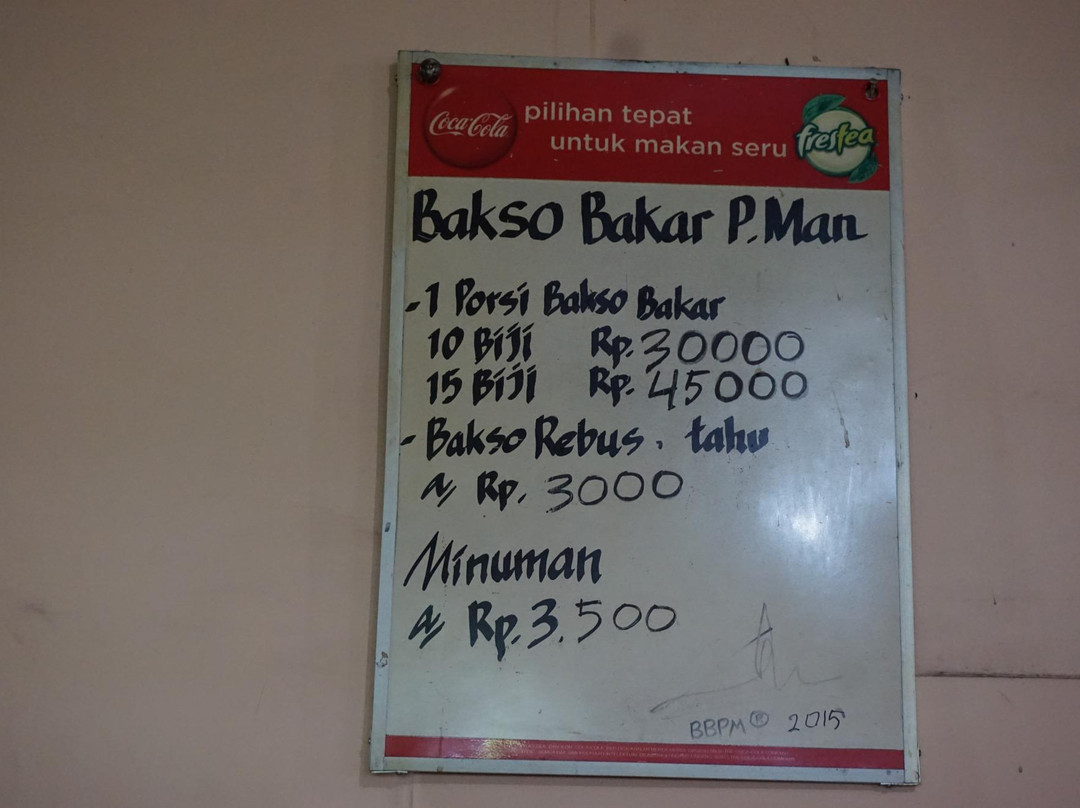 Coca-Cola
pilihan tepat
untuk makan seru
frestea
Bakso Bakar P.Man
- 1 Porsi Bakso Bakar
10 Biji Rp. 30000
15 Biji Rp. 45000
- Bakso Rebus, tahu
a/ Rp. 3000
Minuman
a/ Rp. 3.500
BBPM® 2015